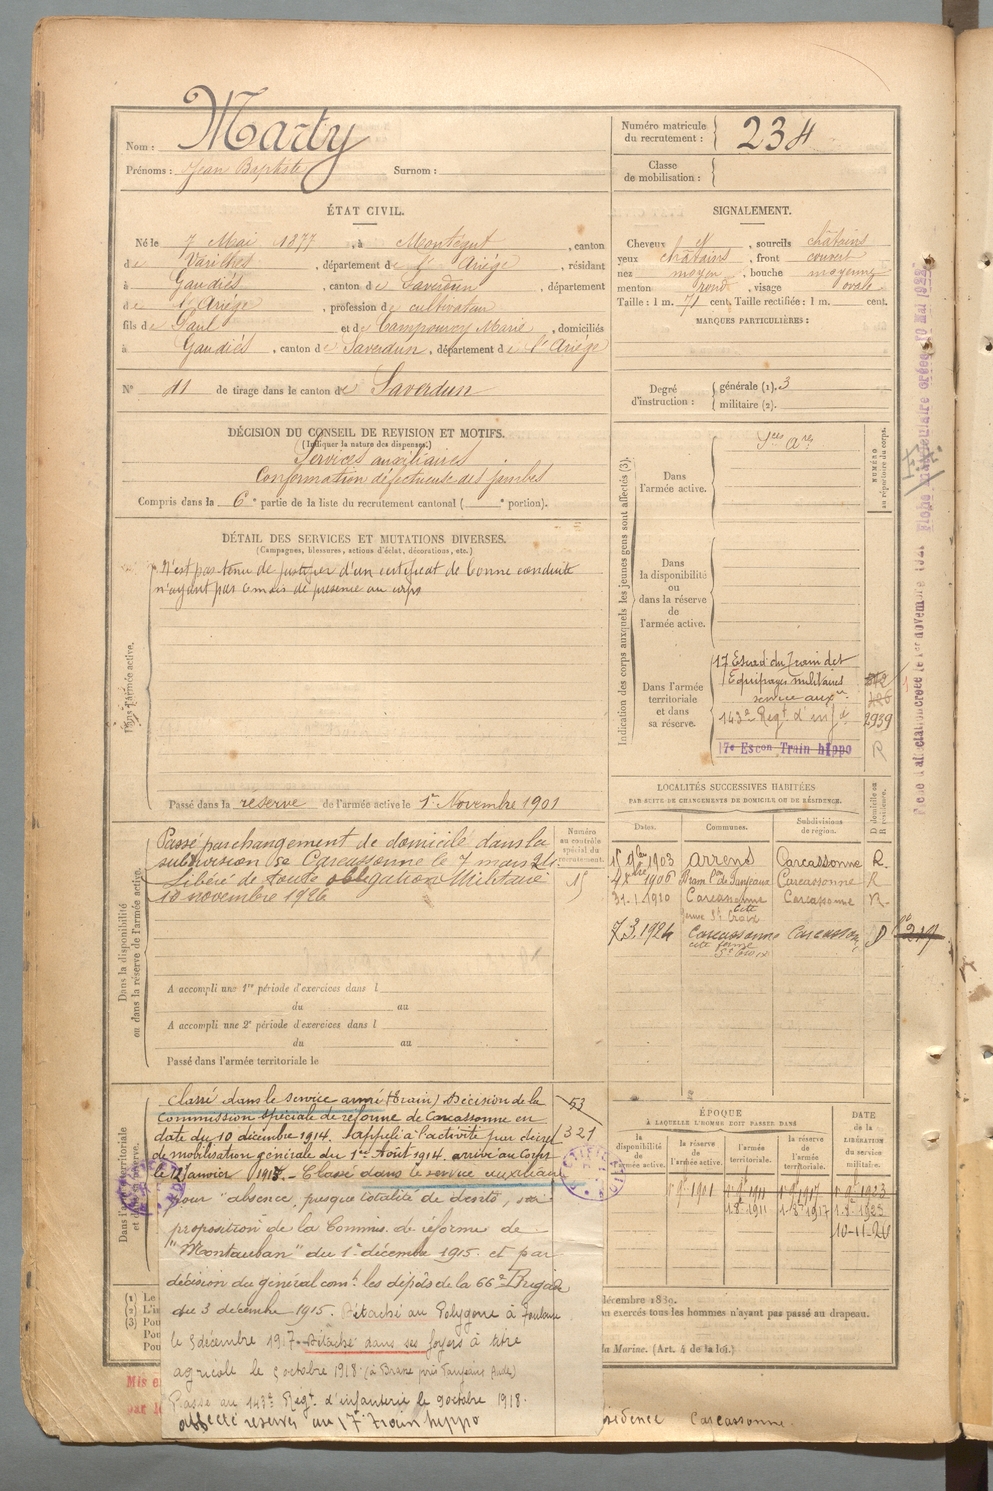 Nom : Marty
Prénoms : Jean Baptiste Surnom :
Numéro matricule du recrutement : 234
Classe de mobilisation :
ÉTAT CIVIL.
Né le 7 Mai 1877, à Montégut, canton
de Varilhes, département de l'Ariège, résidant
à Gaudiès, canton de Saverdun, département
de l'Ariège, profession de cultivateur
fils de Paul et de Campourcy Marie, domiciliés
à Gaudiès, canton de Saverdun, département de l'Ariège
N° 11 de tirage dans le canton de Saverdun
SIGNALEMENT.
Cheveux et, sourcils châtains
yeux châtains, front couvert
nez moyen, bouche moyenne
menton rond, visage ovale
Taille : 1 m. 71 cent. Taille rectifiée : 1 m. cent.
MARQUES PARTICULIÈRES :
Degré d'instruction : générale (1). 3
militaire (2).
DÉCISION DU CONSEIL DE REVISION ET MOTIFS.
(Indiquer la nature des dispenses.)
Services auxiliaires
Conformation défectueuse des jambes
Compris dans la 6e partie de la liste du recrutement cantonal ( e portion).
DÉTAIL DES SERVICES ET MUTATIONS DIVERSES.
(Campagnes, blessures, actions d'éclat, décorations, etc.)
Dans l'armée active.
N'est pas tenu de justifier d'un certificat de bonne conduite
n'ayant pas 6 mois de présence au corps
Passé dans la réserve de l'armée active le 1er Novembre 1901
Indication des corps auxquels les jeunes gens sont affectés (3).
NUMÉRO au répertoire du corps.
Dans l'armée active.
Dans la disponibilité ou dans la réserve de l'armée active.
Dans l'armée territoriale et dans sa réserve.
17 Escad. du Train des
Equipages militaires
service auxre
143e Regt d'inf
2939
17e Escon Train hippo
R
Dans la disponibilité ou dans la réserve de l'armée active.
Numéro au contrôle spécial du recrutement.
Passé par changement de domicile dans la
subdivision de Carcassonne le 7 mars 24
Libéré de toute obligation Militaire
10 novembre 1926
A accompli une 1re période d'exercices dans l
du au
A accompli une 2e période d'exercices dans l
du au
Passé dans l'armée territoriale le
LOCALITÉS SUCCESSIVES HABITÉES
PAR SUITE DE CHANGEMENTS DE DOMICILE OU DE RÉSIDENCE.
Dates. Communes. Subdivisions de région. D domicile ou R résidence.
1903 Arzens Carcassonne R
1906 Bram Carcassonne R
31.1.1910 Carcassonne Carcassonne R
7.3.1924 Carcassonne Carcassonne D
Dans l'armée territoriale et dans sa réserve.
Classé dans le service armé (train) Décision de la
Commission spéciale de réforme de Carcassonne en
date du 10 décembre 1914. Appelé à l'activité par décret
de mobilisation générale du 1er Août 1914. arrivé au Corps
le 12 Janvier 1915. - Classé dans le service auxiliaire
pour "absence presque totalité de dents,
proposition de la Commis. de réforme de
"Montauban" du 1er décembre 1915. et par
décision du général comt. les dépôts de la 66e Brigade
du 3 décembre 1915. Détaché au Polygone à Toulouse
le 5 décembre 1917. Détaché dans ses foyers à titre
agricole le 5 octobre 1918.
Passé au 143e Regt. d'infanterie le 9 octobre 1918.
affecté réserves au 17e Train hippo
53
321
ÉPOQUE
À LAQUELLE L'HOMME DOIT PASSER DANS
la disponibilité de l'armée active. la réserve de l'armée active. l'armée territoriale. la réserve de l'armée territoriale.
DATE de la LIBÉRATION du service militaire.
10-11-26
décembre 1889.
on exercés tous les hommes n'ayant pas passé au drapeau.
la Marine. (Art. 4 de la loi.)
résidence Carcassonne.